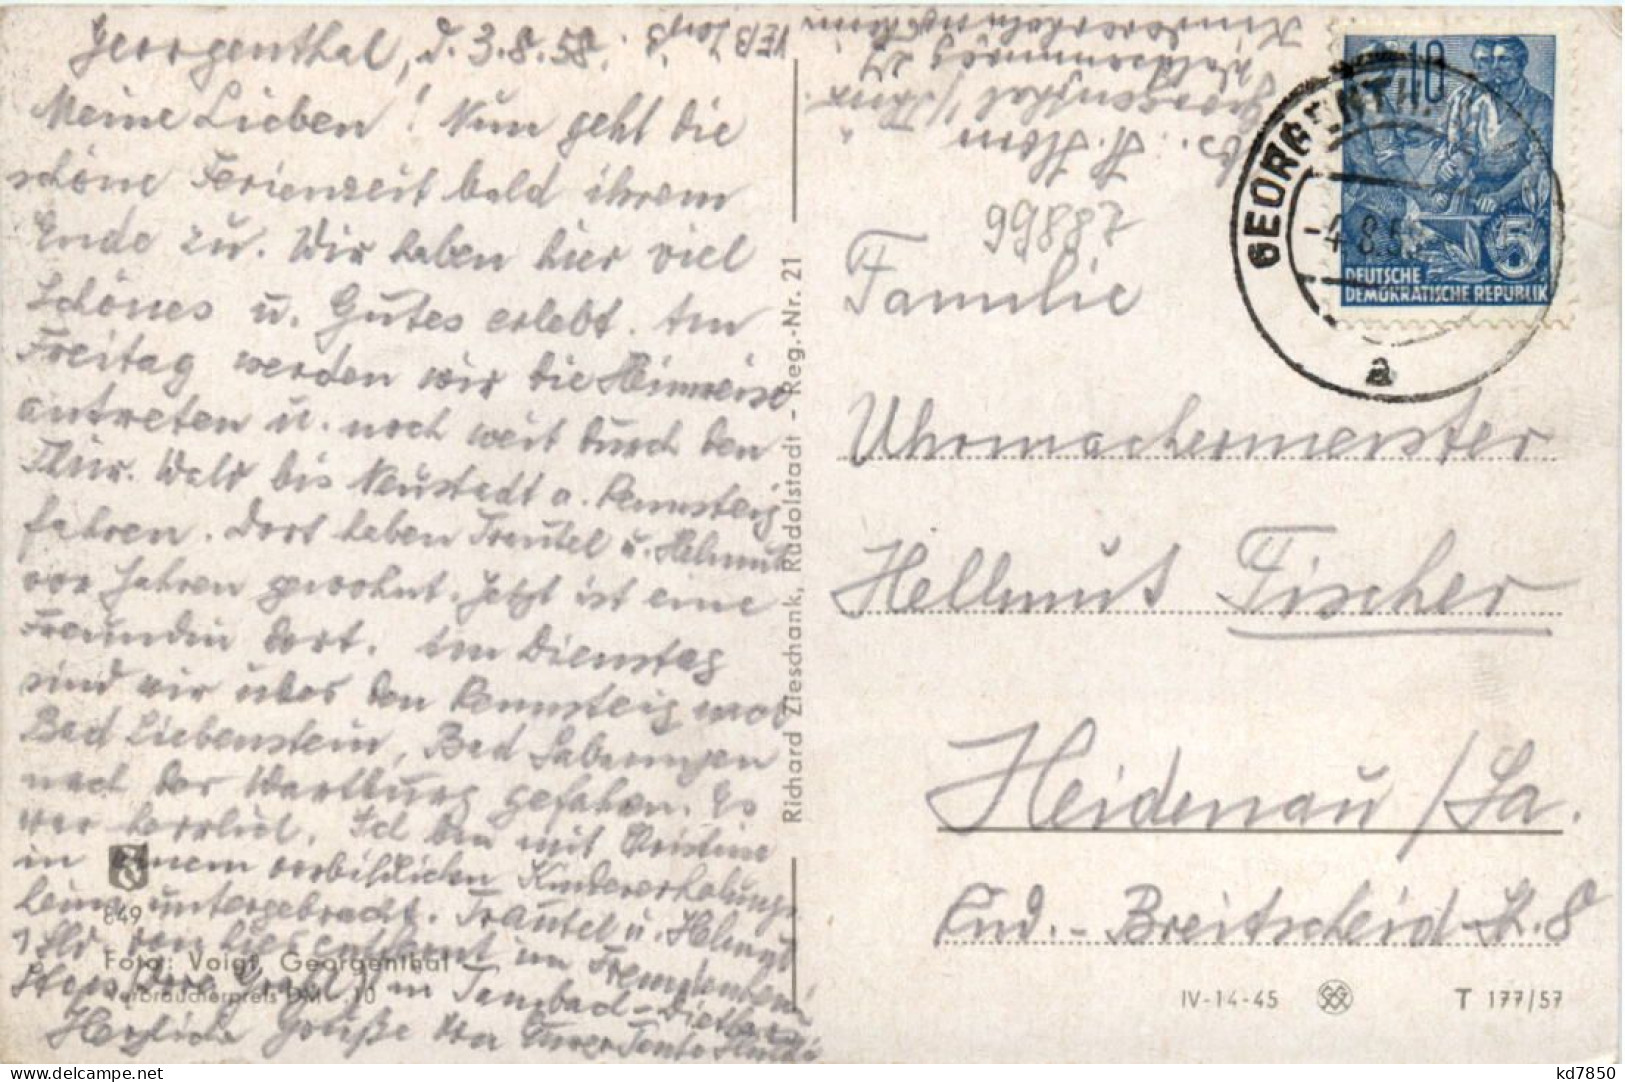 Georgenthal, d. 3.8.58.
Meine Lieben! Nun geht die
schöne Ferienzeit bald ihrem
Ende zu. Wir haben hier viel
Schönes u. Gutes erlebt. Am
Freitag werden wir die Heimreise
antreten u. noch weit durch den
Thür. Wald bis Neustadt a. Rennsteig
fahren. Dort haben Trautel u. Helmut
vor Jahren gewohnt. Jetzt ist eine
Freundin dort. Am Dienstag
sind wir über den Rennsteig nach
Bad Liebenstein, Bad Salzungen
nach der Wartburg gefahren. Es
war herrlich. Ich bin mit Christine
in einem vorbildlichen Kindererholungs-
heim untergebracht. Trautel u. Helmut
1 Std. von hier entfernt im Fremdenheim
in Tambach-Dietharz
Herzliche Grüße von Eurer Tante Hilde
849
Foto: Voigt, Georgenthal
Verbraucherpreis DM -.10
Richard Zieschank, Rudolstadt - Reg.-Nr. 21
Abs. H. Horn
Georgenthal/Thür.
Kindererholungsheim
VEB
99882
GEORGENTHAL
-4.8.5
a
10
5
DEUTSCHE
DEMOKRATISCHE REPUBLIK
Familie
Uhrmachermeister
Hellmut Fischer
Heidenau /Sa.
Rud.-Breitscheid-St. 8
IV-14-45
T 177/57
kd7850